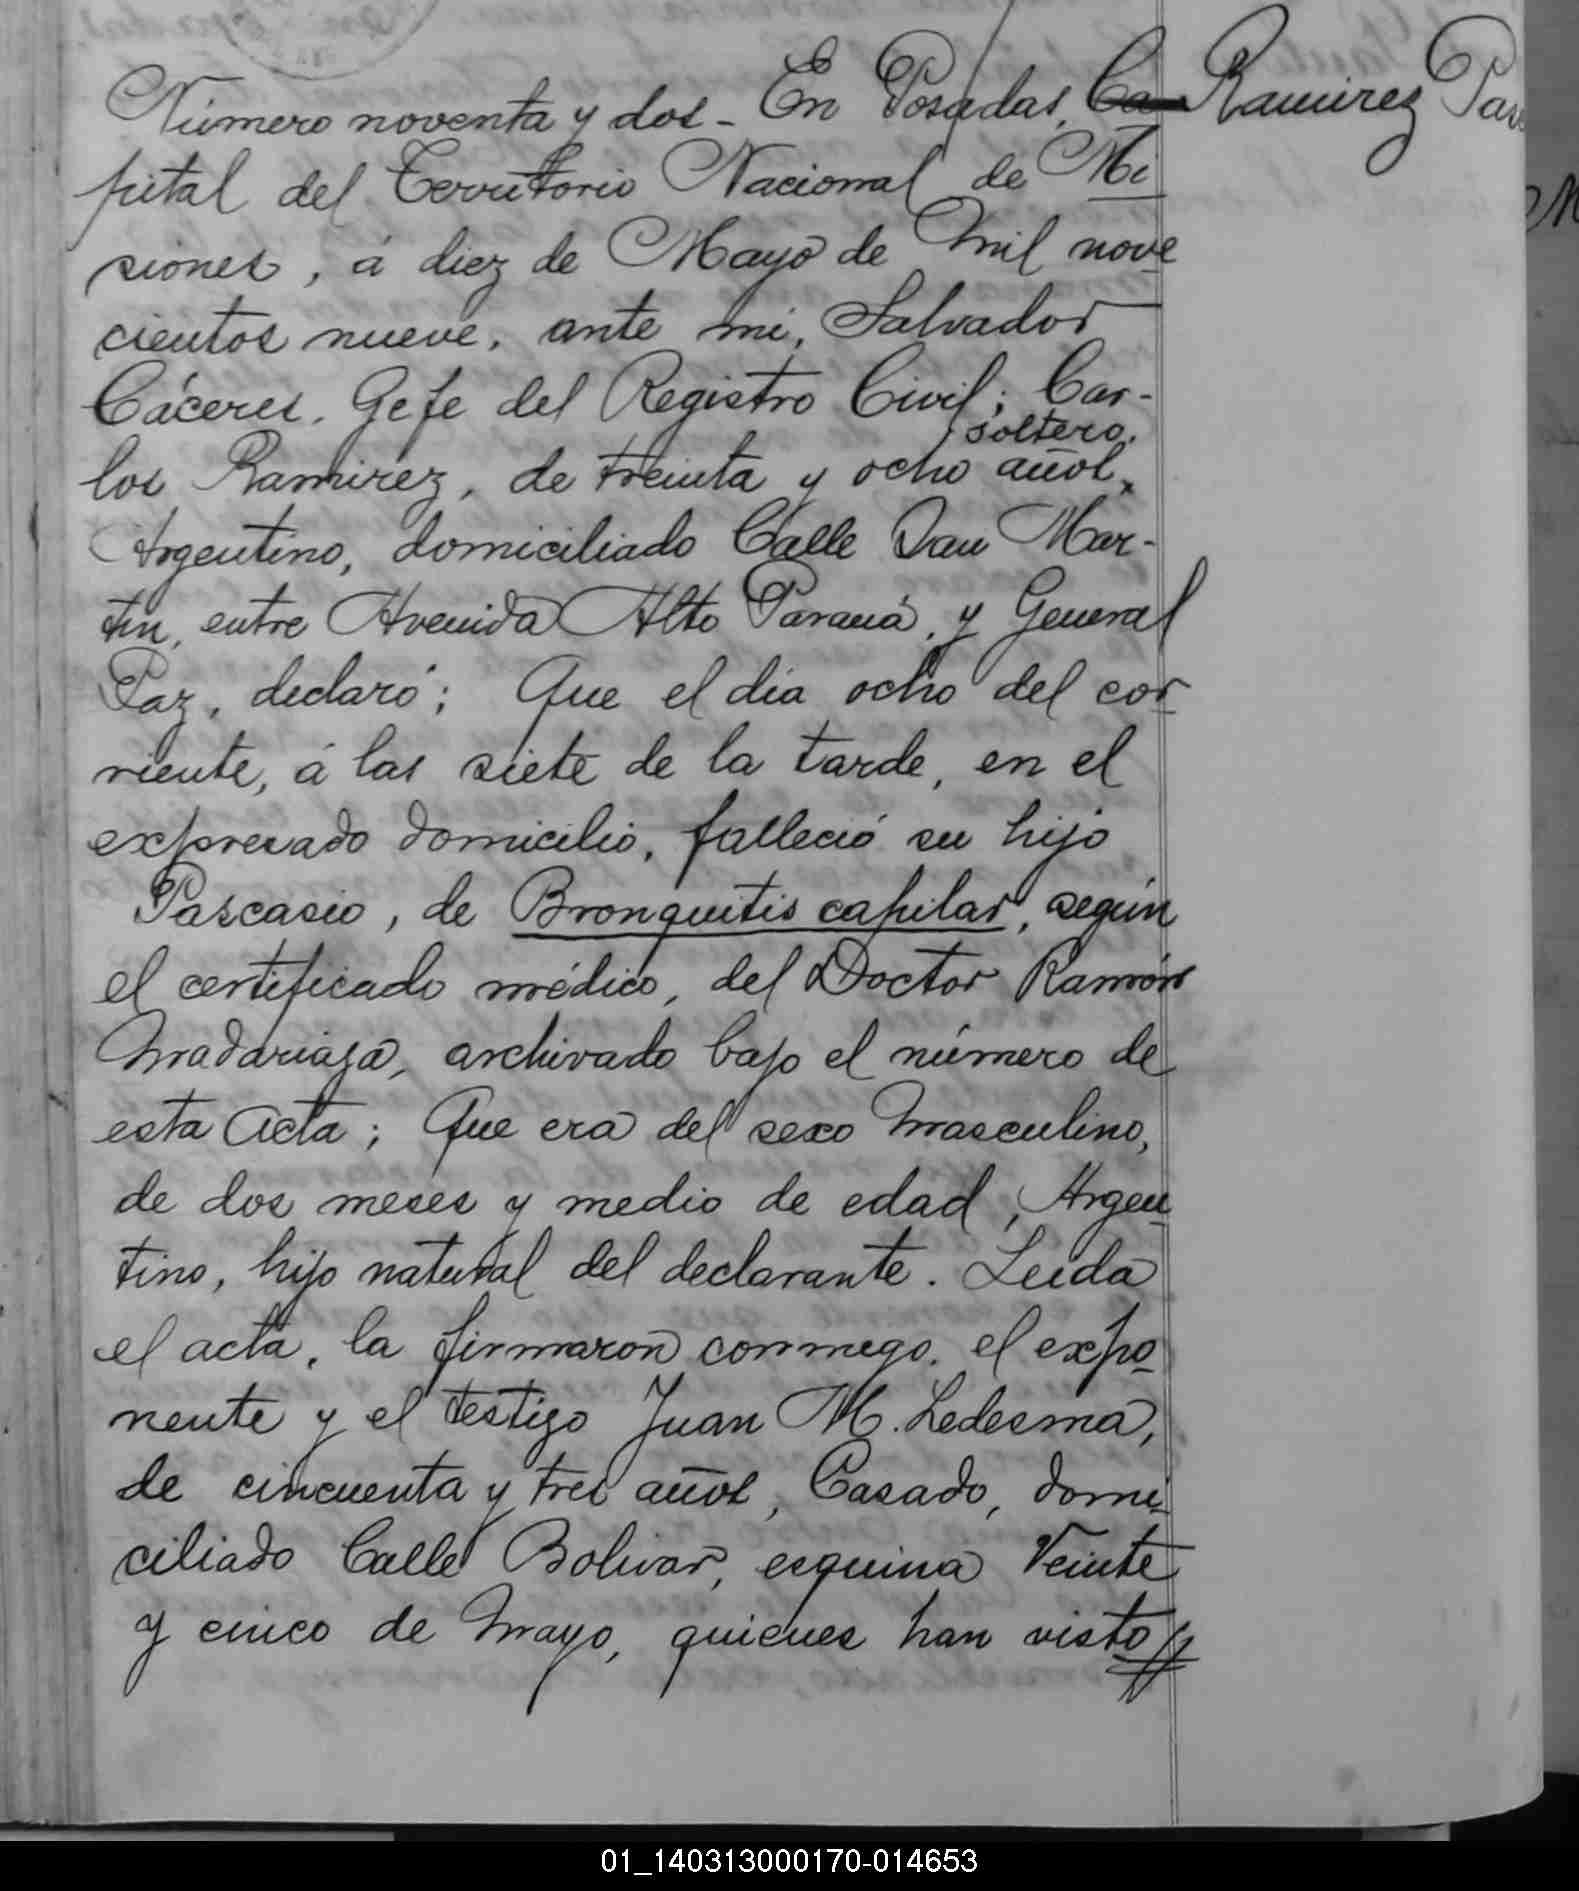 Número noventa y dos - En Posadas, Ca
pital del Territorio Nacional de Mi
siones, á diez de Mayo de mil nove
cientos nueve, ante mi, Salvador
Cáceres, Gefe del Registro Civil; Car-
soltero.
los Ramirez, de treinta y ocho años,
Argentino, domiciliado Calle San Mar-
tin, entre Avenida Alto Paraná, y General
Paz, declaró; Que el dia ocho del cor
riente, á las siete de la tarde, en el
expresado domicilio, falleció su hijo
Pascasio, de Bronquitis capilar, según
el certificado médico, del Doctor Ramón
Madariaga, archivado bajo el número de
esta acta; Que era del sexo masculino,
de dos meses y medio de edad, Argen
tino, hijo natural del declarante. Leida
el acta, la firmaron conmego, el expo
nente y el testigo Juan M. Ledesma,
de cincuenta y tres años, Casado, domi
ciliado Calle Bolivar, esquina Veinte
y cinco de Mayo, quienes han visto//
Ramirez Pas
M
01_140313000170-014653